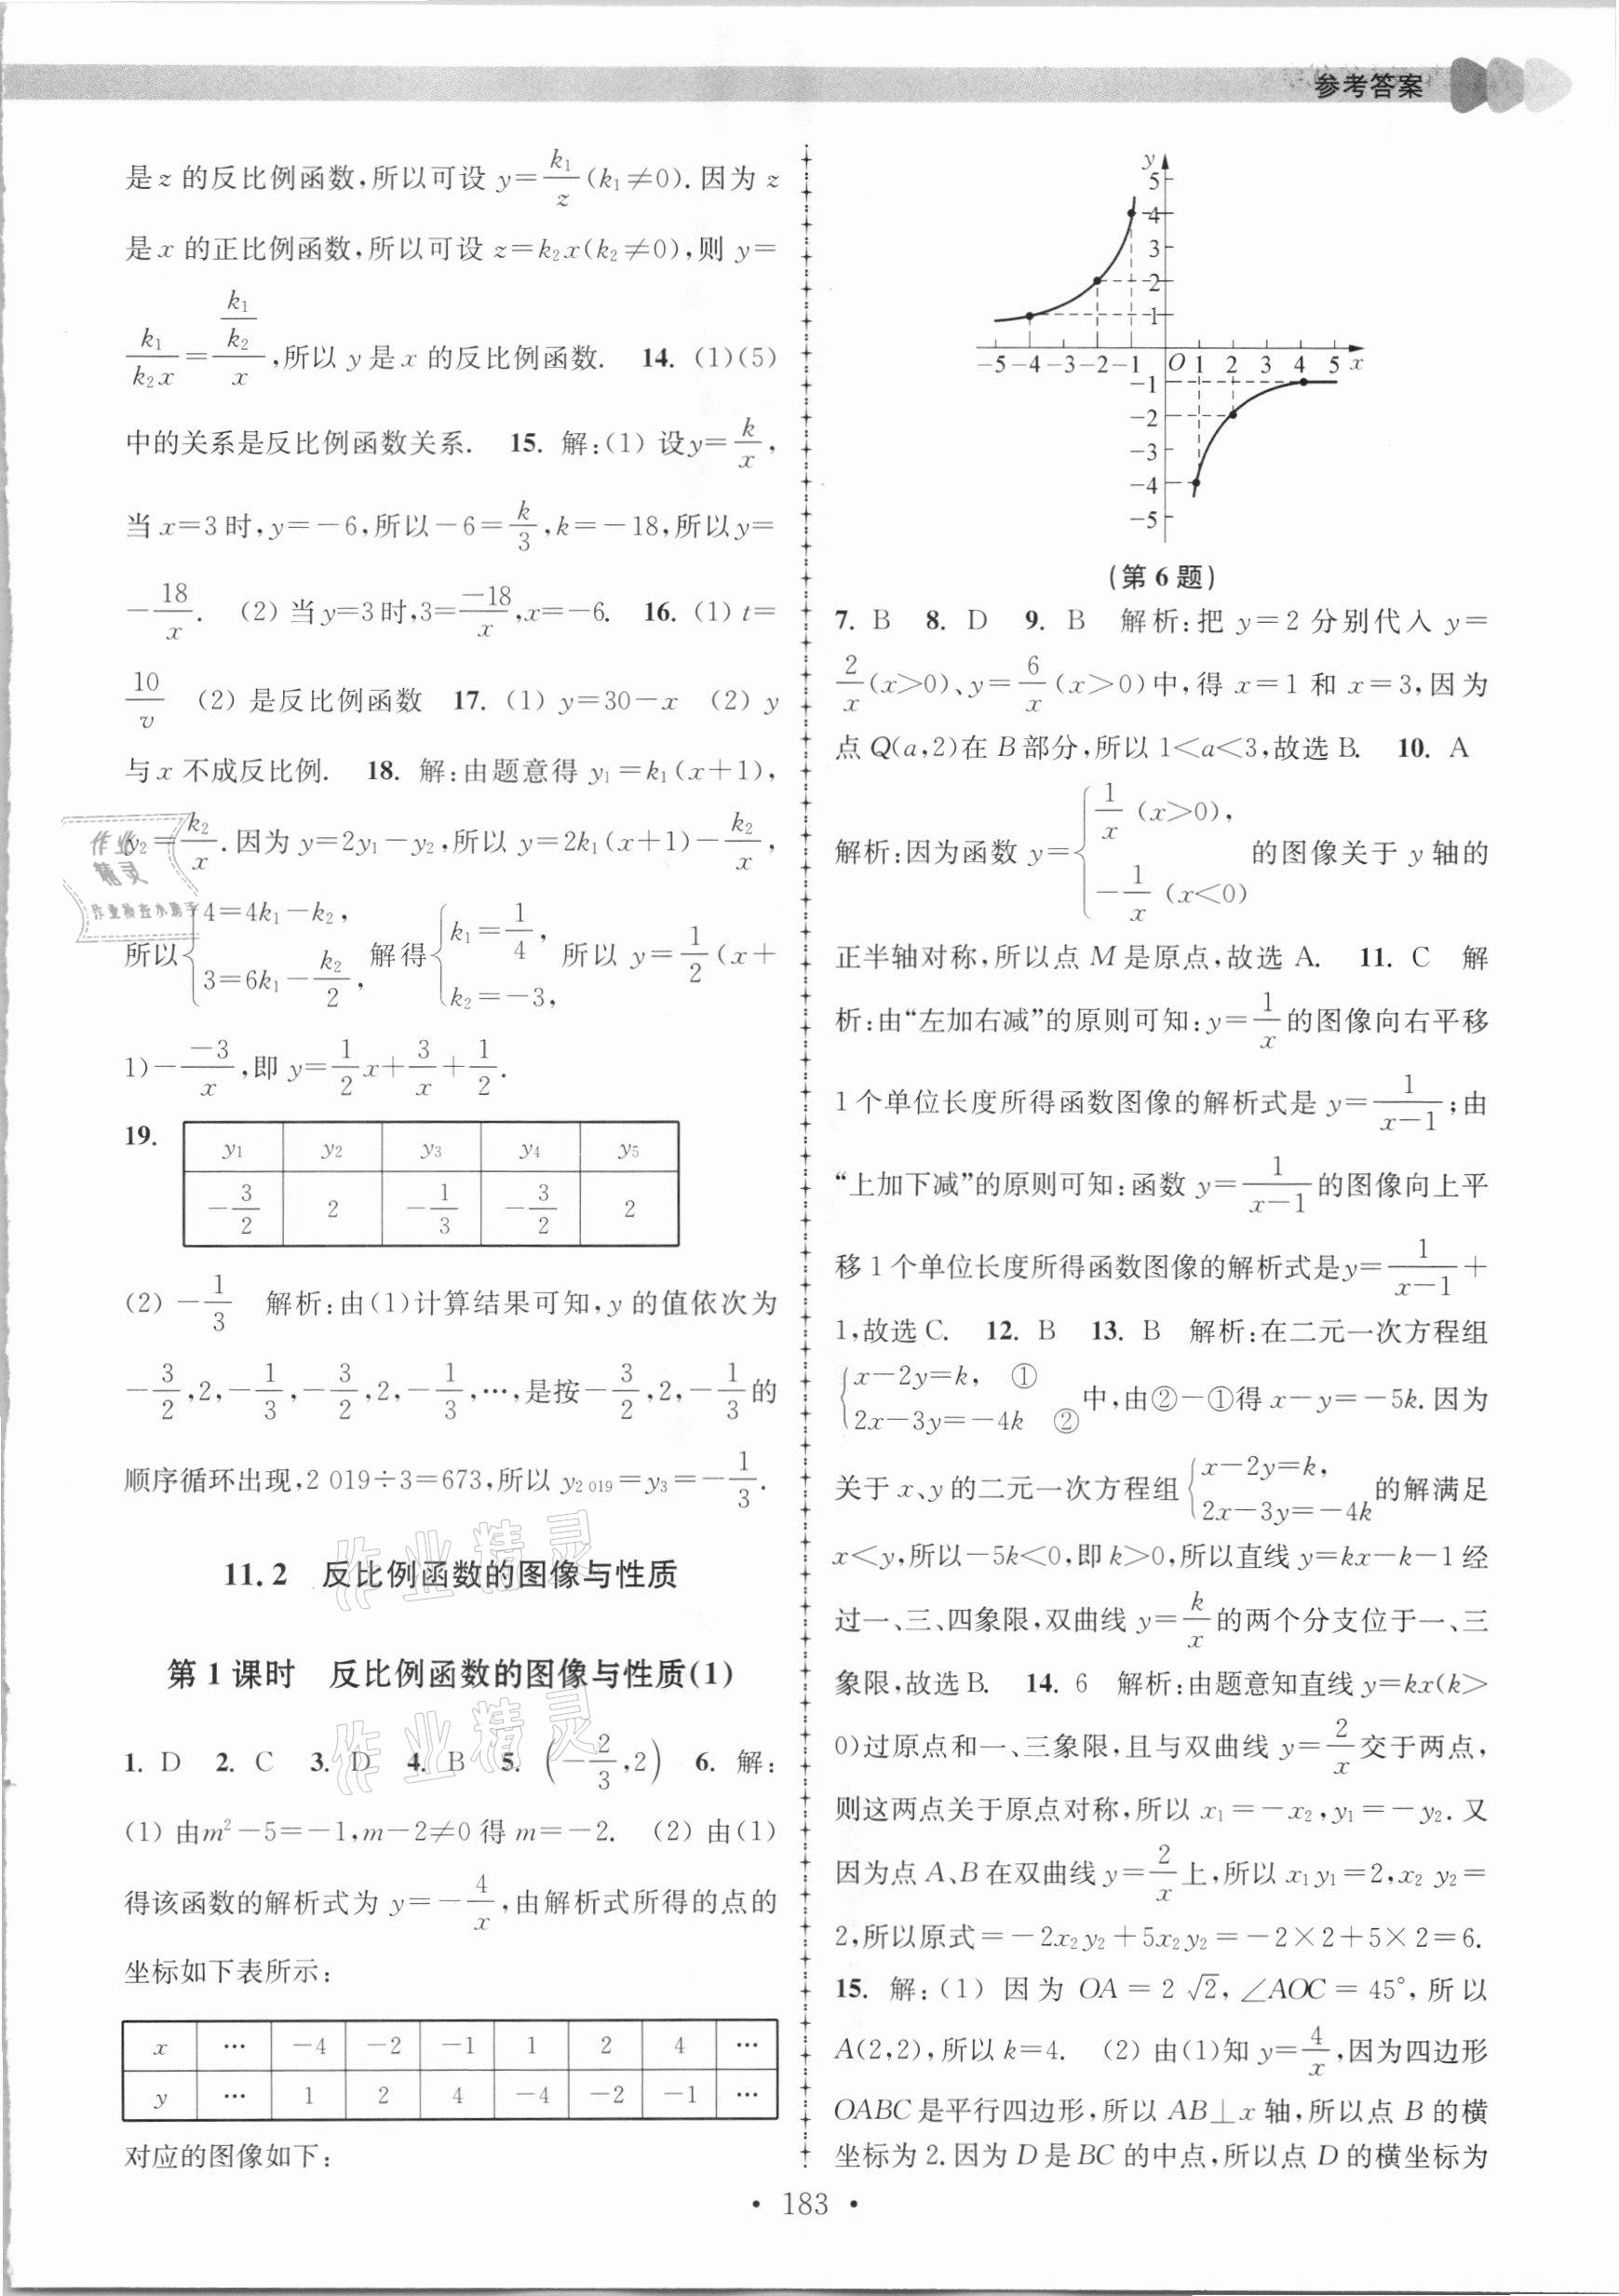 参考答案
是 z 的反比例函数,所以可设 y=k₁/z(k₁≠0).因为 z
是 x 的正比例函数,所以可设 z=k₂x(k₂≠0),则 y=
k₁/(k₂x)=(k₁/k₂)/x,所以 y 是 x 的反比例函数. 14. (1)(5)
中的关系是反比例函数关系. 15. 解:(1) 设y=k/x,
当 x=3 时,y=-6,所以-6=k/3,k=-18,所以y=
-18/x. (2) 当 y=3时,3=-18/x,x=-6. 16. (1) t=
10/v (2) 是反比例函数 17. (1) y=30-x (2) y
与 x 不成反比例. 18. 解:由题意得 y₁=k₁(x+1),
y₂=k₂/x.因为 y=2y₁-y₂,所以 y=2k₁(x+1)-k₂/x,
所以{4=4k₁-k₂, 3=6k₁-k₂/2, 解得{k₁=1/4, k₂=-3, 所以 y=1/2(x+
1)--3/x,即 y=1/2x+3/x+1/2.
19.
y₁ y₂ y₃ y₄ y₅
-3/2 2 -1/3 -3/2 2
(2) -1/3 解析:由(1)计算结果可知,y 的值依次为
-3/2,2,-1/3,-3/2,2,-1/3,…,是按-3/2,2,-1/3的
顺序循环出现,2 019÷3=673,所以 y₂ ₀₁₉=y₃=-1/3.
11.2 反比例函数的图像与性质
第 1 课时 反比例函数的图像与性质(1)
1. D 2. C 3. D 4. B 5. (-2/3,2) 6. 解:
(1) 由m²-5=-1,m-2≠0 得 m=-2. (2) 由(1)
得该函数的解析式为 y=-4/x,由解析式所得的点的
坐标如下表所示:
x … -4 -2 -1 1 2 4 …
y … 1 2 4 -4 -2 -1 …
对应的图像如下:
y
5
4
3
2
1
-5 -4 -3 -2 -1 O 1 2 3 4 5 x
-1
-2
-3
-4
-5
(第 6 题)
7. B 8. D 9. B 解析:把 y=2 分别代入 y=
2/x(x>0)、y=6/x(x>0)中,得 x=1 和 x=3,因为
点 Q(a,2)在 B 部分,所以 1<a<3,故选 B. 10. A
解析:因为函数 y={1/x (x>0), -1/x (x<0) 的图像关于 y 轴的
正半轴对称,所以点 M 是原点,故选 A. 11. C 解
析:由“左加右减”的原则可知:y=1/x的图像向右平移
1 个单位长度所得函数图像的解析式是 y=1/(x-1);由
“上加下减”的原则可知:函数 y=1/(x-1)的图像向上平
移 1 个单位长度所得函数图像的解析式是y=1/(x-1)+
1,故选 C. 12. B 13. B 解析:在二元一次方程组
{x-2y=k, ① 2x-3y=-4k ②中,由②-①得 x-y=-5k.因为
关于 x、y 的二元一次方程组{x-2y=k, 2x-3y=-4k的解满足
x<y,所以-5k<0,即 k>0,所以直线 y=kx-k-1 经
过一、三、四象限,双曲线 y=k/x的两个分支位于一、三
象限,故选 B. 14. 6 解析:由题意知直线 y=kx(k>
0)过原点和一、三象限,且与双曲线 y=2/x交于两点,
则这两点关于原点对称,所以 x₁=-x₂,y₁=-y₂.又
因为点 A、B 在双曲线 y=2/x上,所以 x₁y₁=2,x₂y₂=
2,所以原式=-2x₂y₂+5x₂y₂=-2×2+5×2=6.
15. 解:(1) 因为 OA=2√2,∠AOC=45°,所以
A(2,2),所以 k=4. (2) 由(1)知 y=4/x,因为四边形
OABC 是平行四边形,所以 AB⊥x 轴,所以点 B 的横
坐标为 2.因为 D 是 BC 的中点,所以点 D 的横坐标为
• 183 •
作业精灵
作业检查小助手
作业精灵
作业精灵